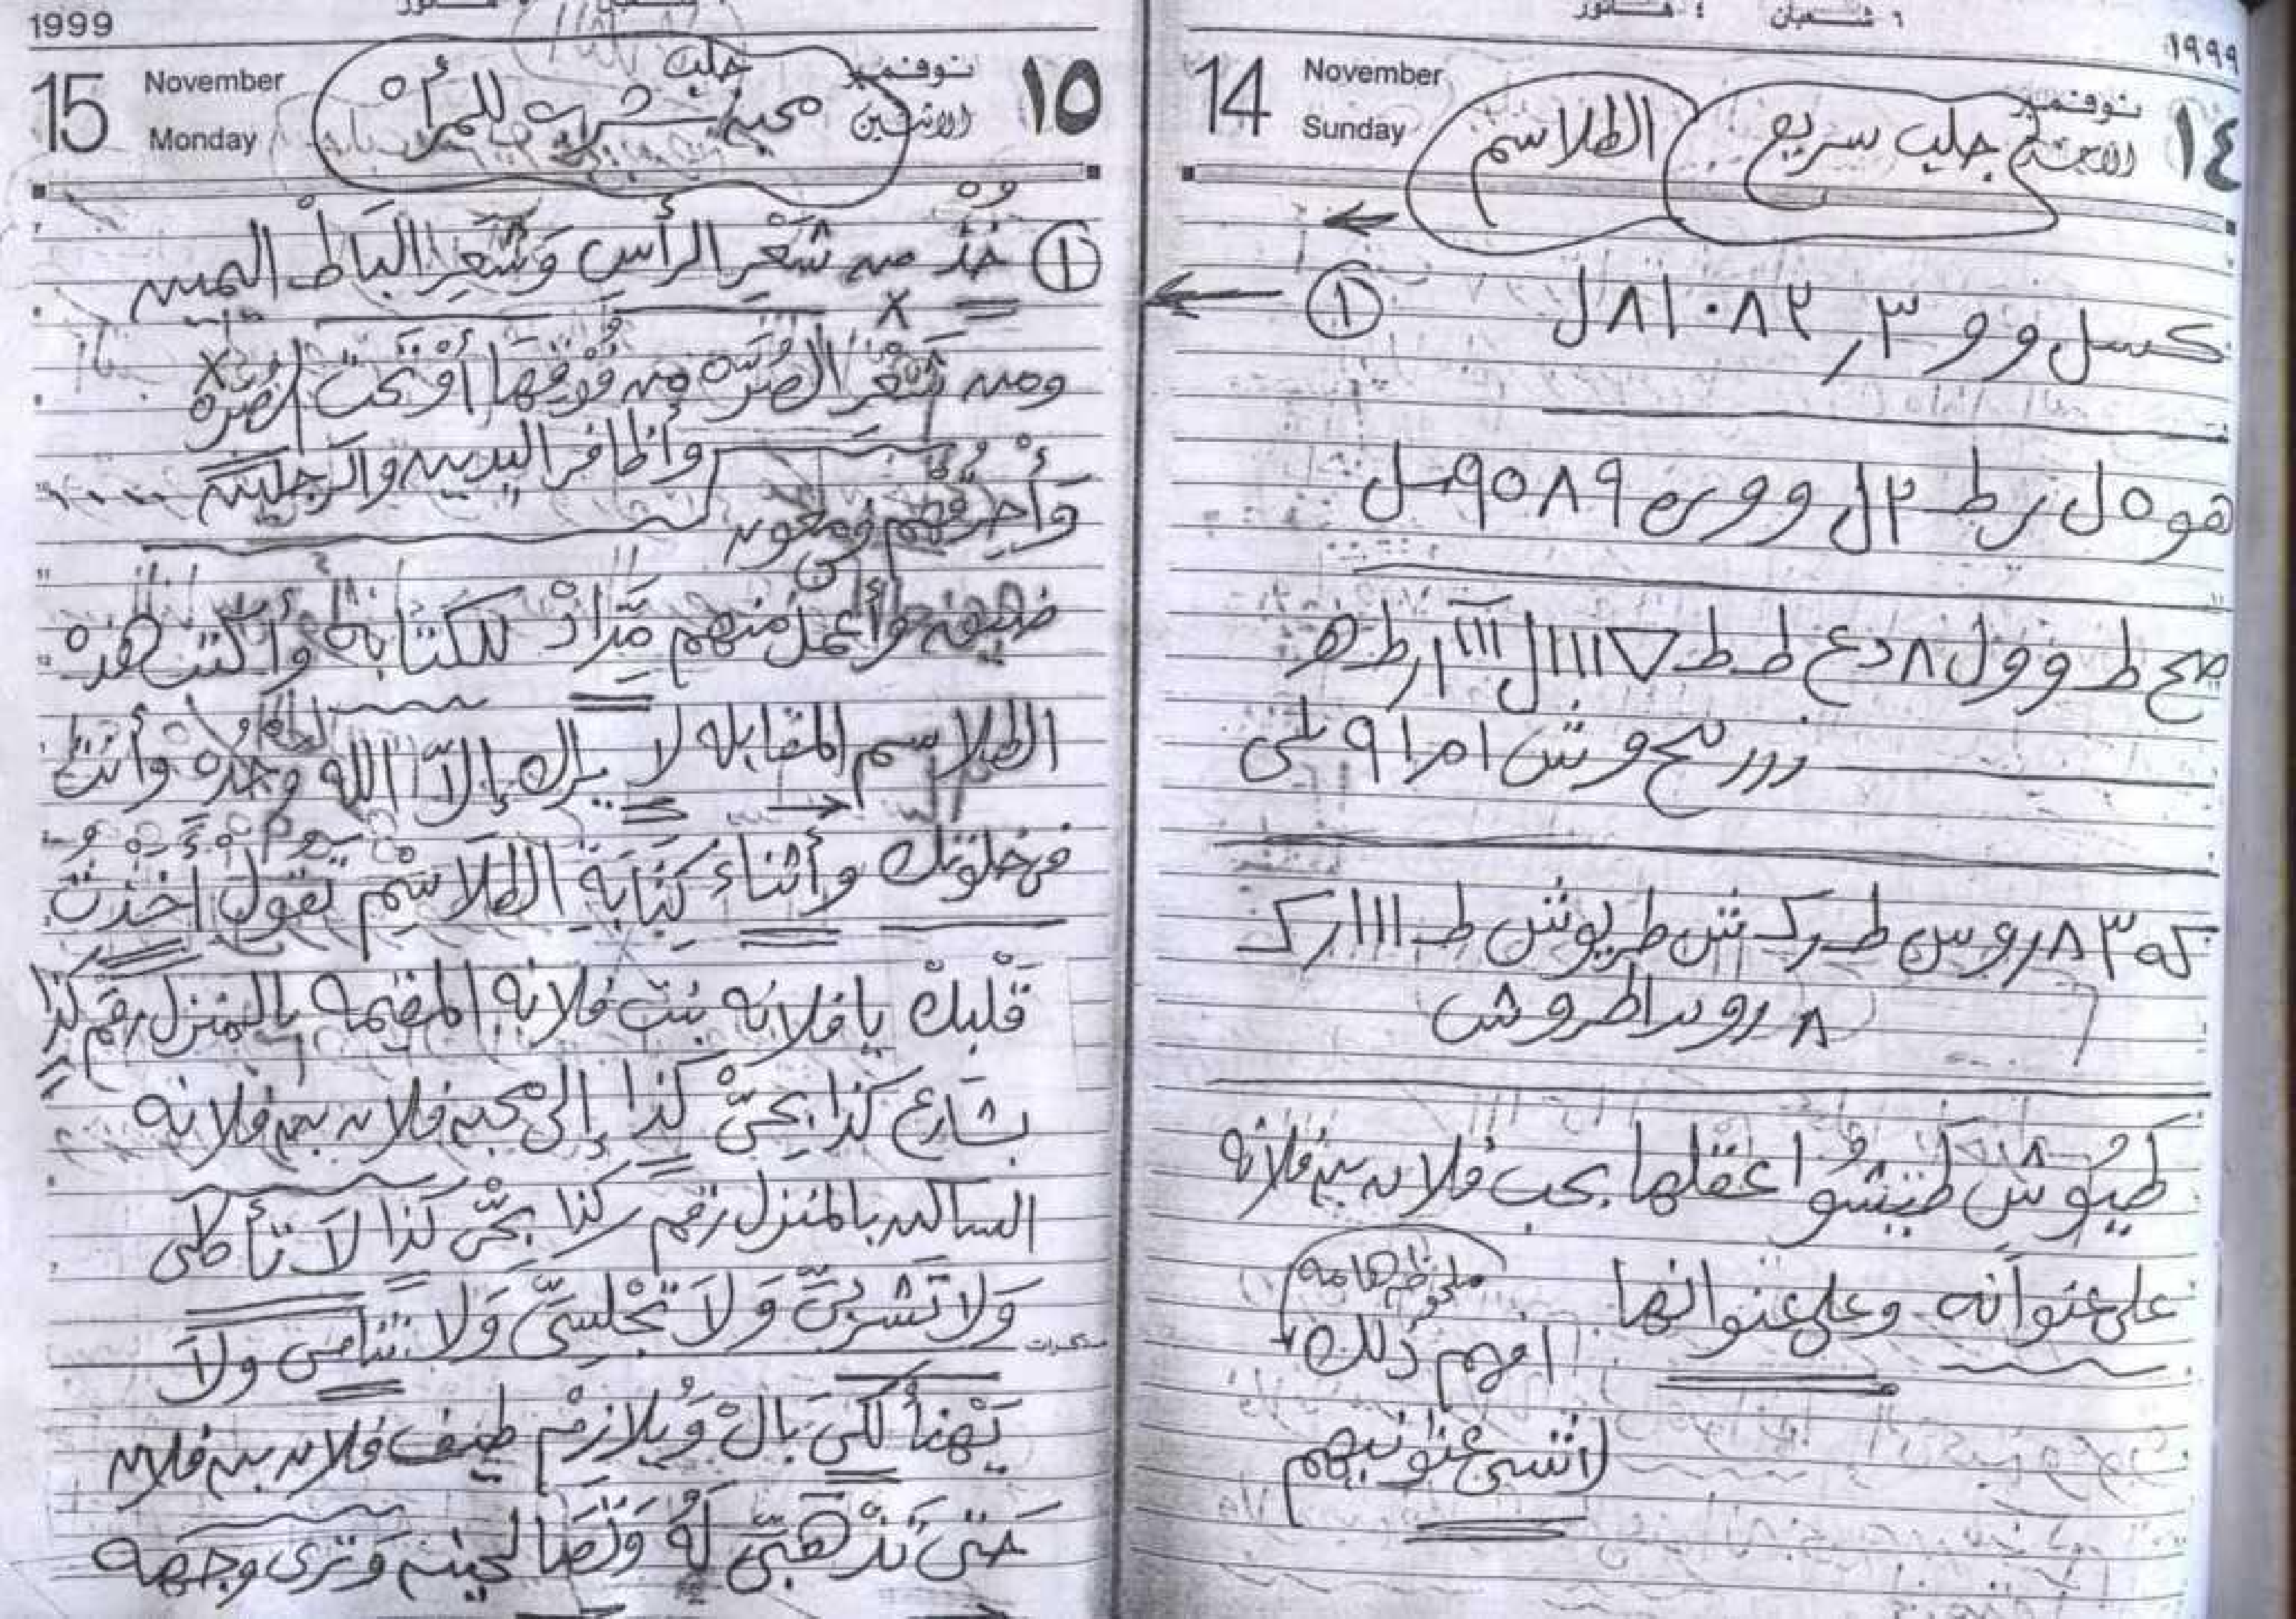 ١٩٩٩
14 November Sunday
نوفمبر
١٤
جلب سريع
الطلاسم
١
كسل و و ٣ر ٨٢ ٨١٠ ل
هو ٥ ل رط ٢ ل و و ٩ ٨ ٥ ٩
صح ط و و ل ٨ دع ط ط ▽ ااا ل ااا ا رط هر
وش ا م ر ا ٩
كه ٣ ٨ روس ط رك ش طريوش ط ااا رك
٨ رو طروش
طيوش طيشوا عقلها بحب فلان بن فلانه
على عنوانه وعلى عنوانها
ملحوظه هامه
افهم ذلك
1999
15 November Monday
نوفمبر
الاثنين
١٥
جلب
محبه للمرأه
١ خُذ من شَعْرِ الرأس وَشَعْرِ البَاطْ اليمين
ومن شَعْر الصُرَّه من فَوْقِهَا أَوْ تحت الصره
وأظافر اليدين والرجلين
وَأَحرقهم
وأعمل منهم مِدَادْ للكتابه وأكتب هذه
الطلاسم المقابله لا يراك إلاّ الله وحْدُه وأنت
فى خلوتك وأثناءَ كتَابَة الطلاسم تقول أَخذت
قَلْبك يا فلانه بنت فلانه المقيمه بالمنزل رقم كذا
بشارع كذا بحىّ كذا إلى محبه فلان بن فلانه
الساكن بالمنزل رقم كذا بحىّ كذا لاَ تأكلى
وَلا تَشربىّ وَلاَ تَجْلِسىّ وَلا تنامى ولاَ
مذكرات
يَهْنأُ لكى بالْ وَيُلازم طيف فلان بن فلان
حَتىَ تَذْهبىّ لَهُ وَتُصَالحينه وَترى وجهه